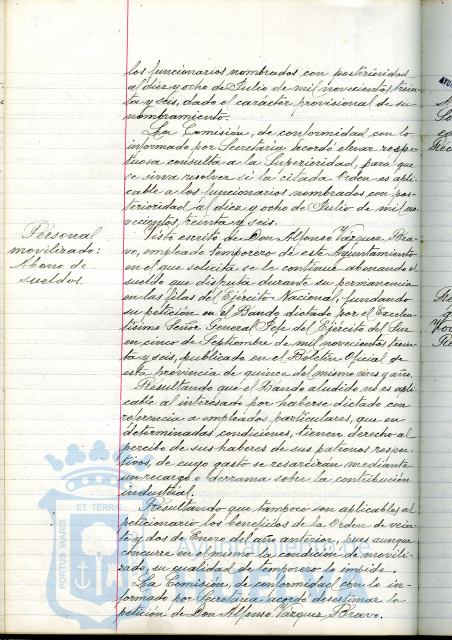 los funcionarios nombrados con posterioridad
al diez y ocho de Julio de mil novecientos trein-
ta y seis, dado el carácter provisional de su
nombramiento.
La Comisión, de conformidad con lo
informado por Secretaría acordó elevar respe-
tuosa consulta a la Superioridad, para que
se sirva resolver si la citada Orden es apli-
cable a los funcionarios nombrados con pos-
terioridad al diez y ocho de Julio de mil no-
vecientos treinta y seis.
Personal
movilizado:
Abono de
sueldos.
Visto escrito de Don Alfonso Vázquez Bra-
vo, empleado temporero de este Ayuntamiento
en el que solicita se le continúe abonando el
sueldo que disfruta durante su permanencia
en las filas del Ejército Nacional, fundando
su petición en el Bando dictado por el Excelen-
tísimo Señor General Jefe del Ejército del Sur
en cinco de Septiembre de mil novecientos trein-
ta y seis, publicado en el Boletín Oficial de
esta provincia de quince del mismo mes y año.
Resultando que el Bando aludido no es apli-
cable al interesado por haberse dictado con
referencia a empleados particulares, que en
determinadas condiciones, tienen derecho al
percibo de sus haberes de sus patronos respec-
tivos, de cuyo gasto se resarcirán mediante
un recargo o derrama sobre la contribución
industrial.
Resultando que tampoco son aplicables al
peticionario los beneficios de la Orden de vein-
te y dos de Enero del año anterior, pues aunque
concurre en el mismo la condición de movili-
zado, su cualidad de temporero lo impide.
La Comisión, de conformidad con lo in-
formado por Secretaría acordó desestimar la
petición de Don Alfonso Vázquez Bravo.
PORTUS MARIS
ET TERRA